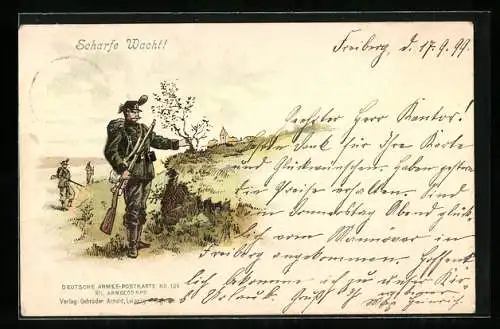 Scharfe Wacht!
Freiberg, d. 17.9.99.
Geehrter Herr Kantor!
Dank für Ihre Karte
und Glückwünschen. Haben gestern
die Preise erhalten. Sind
am Donnerstag Abend glück-
lich vom Manöver in
Freiberg angekommen. Hoffent-
lich bekomme ich zu unser
Urlaub.
Heinrich.
DEUTSCHE ARMEE-POSTKARTE NO. 124
XII. ARMEECORPS
Verlag: Gebrüder Arnold, Leipzig